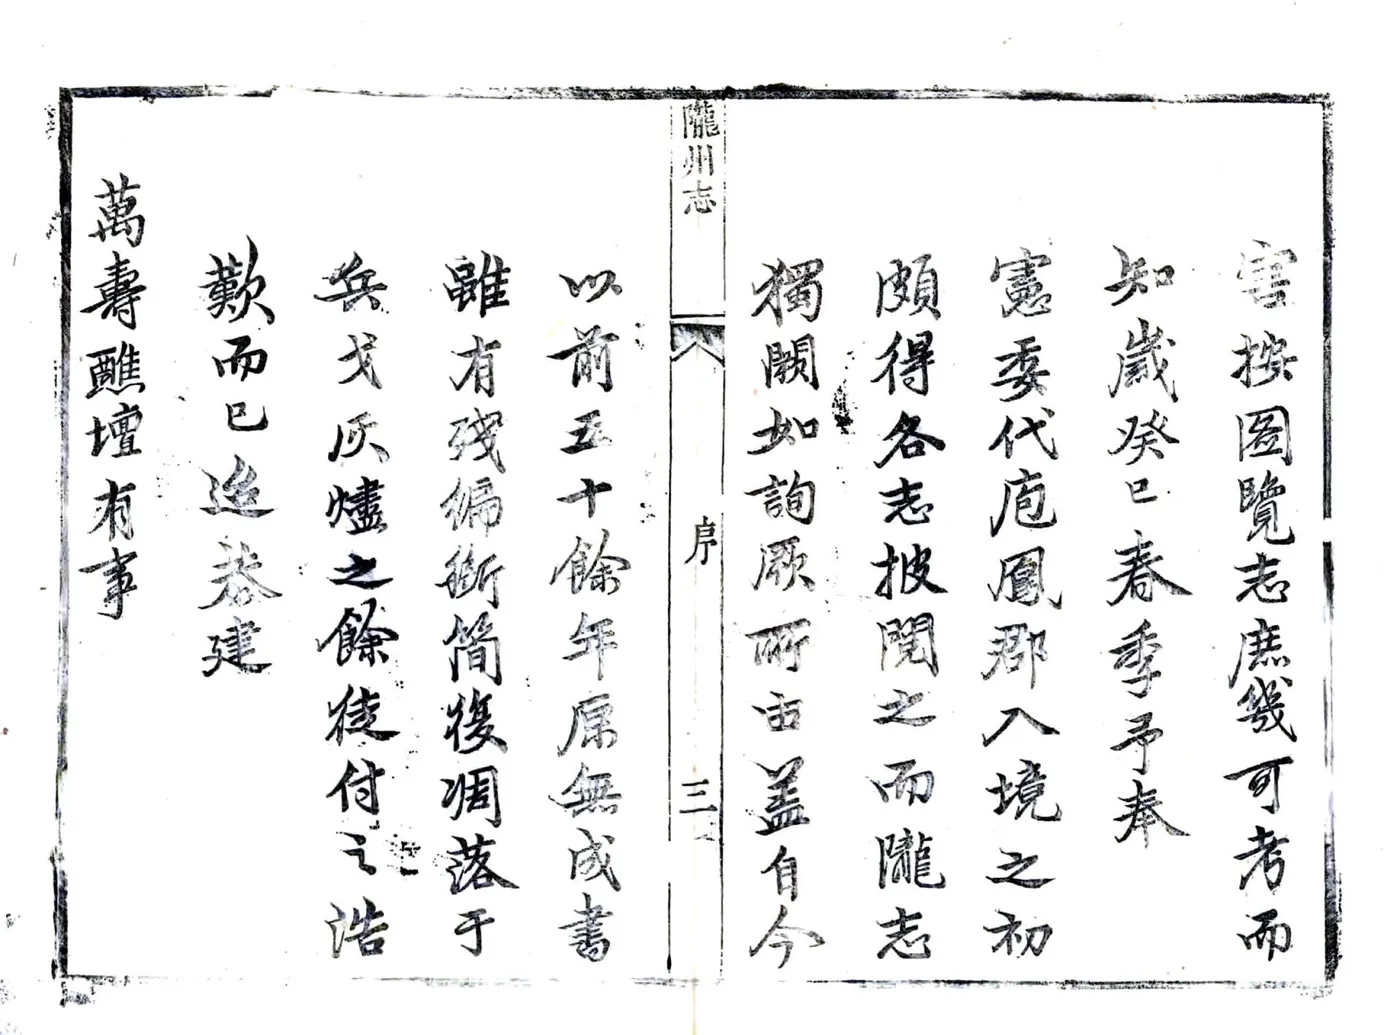 害按圖覽志庶幾可考而
知歲癸巳春季予奉
憲委代庖鳳郡入境之初
頗得各志披閱之而隴志
獨闕如詢厥所由蓋自今
隴州志
序
三
以前五十餘年原無成書
雖有殘編斷簡復凋落于
兵戈灰燼之餘徒付之浩
歎而已迨恭建
萬壽醮壇有事